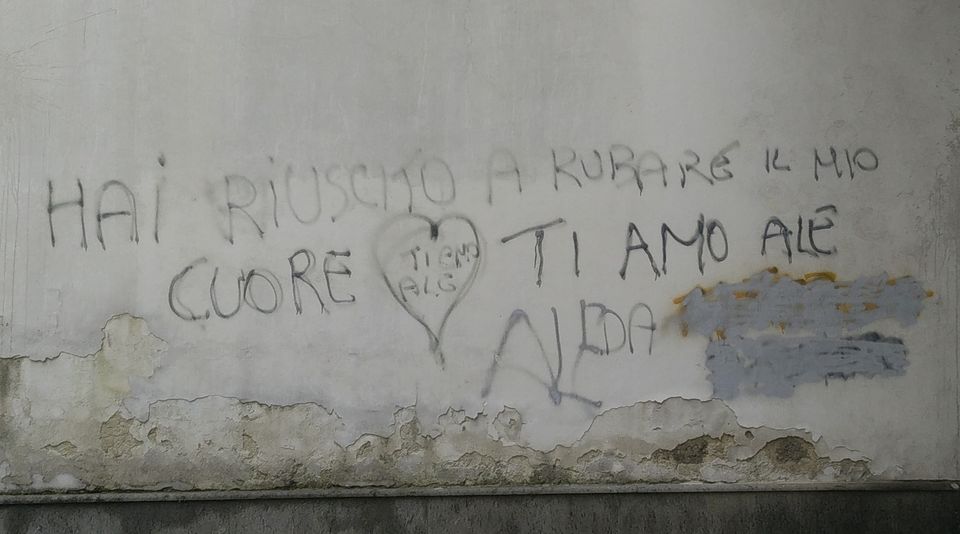 HAI RIUSCITO A RUBARE IL MIO
CUORE
TI AMO
ALE
TI AMO ALE
ALDA